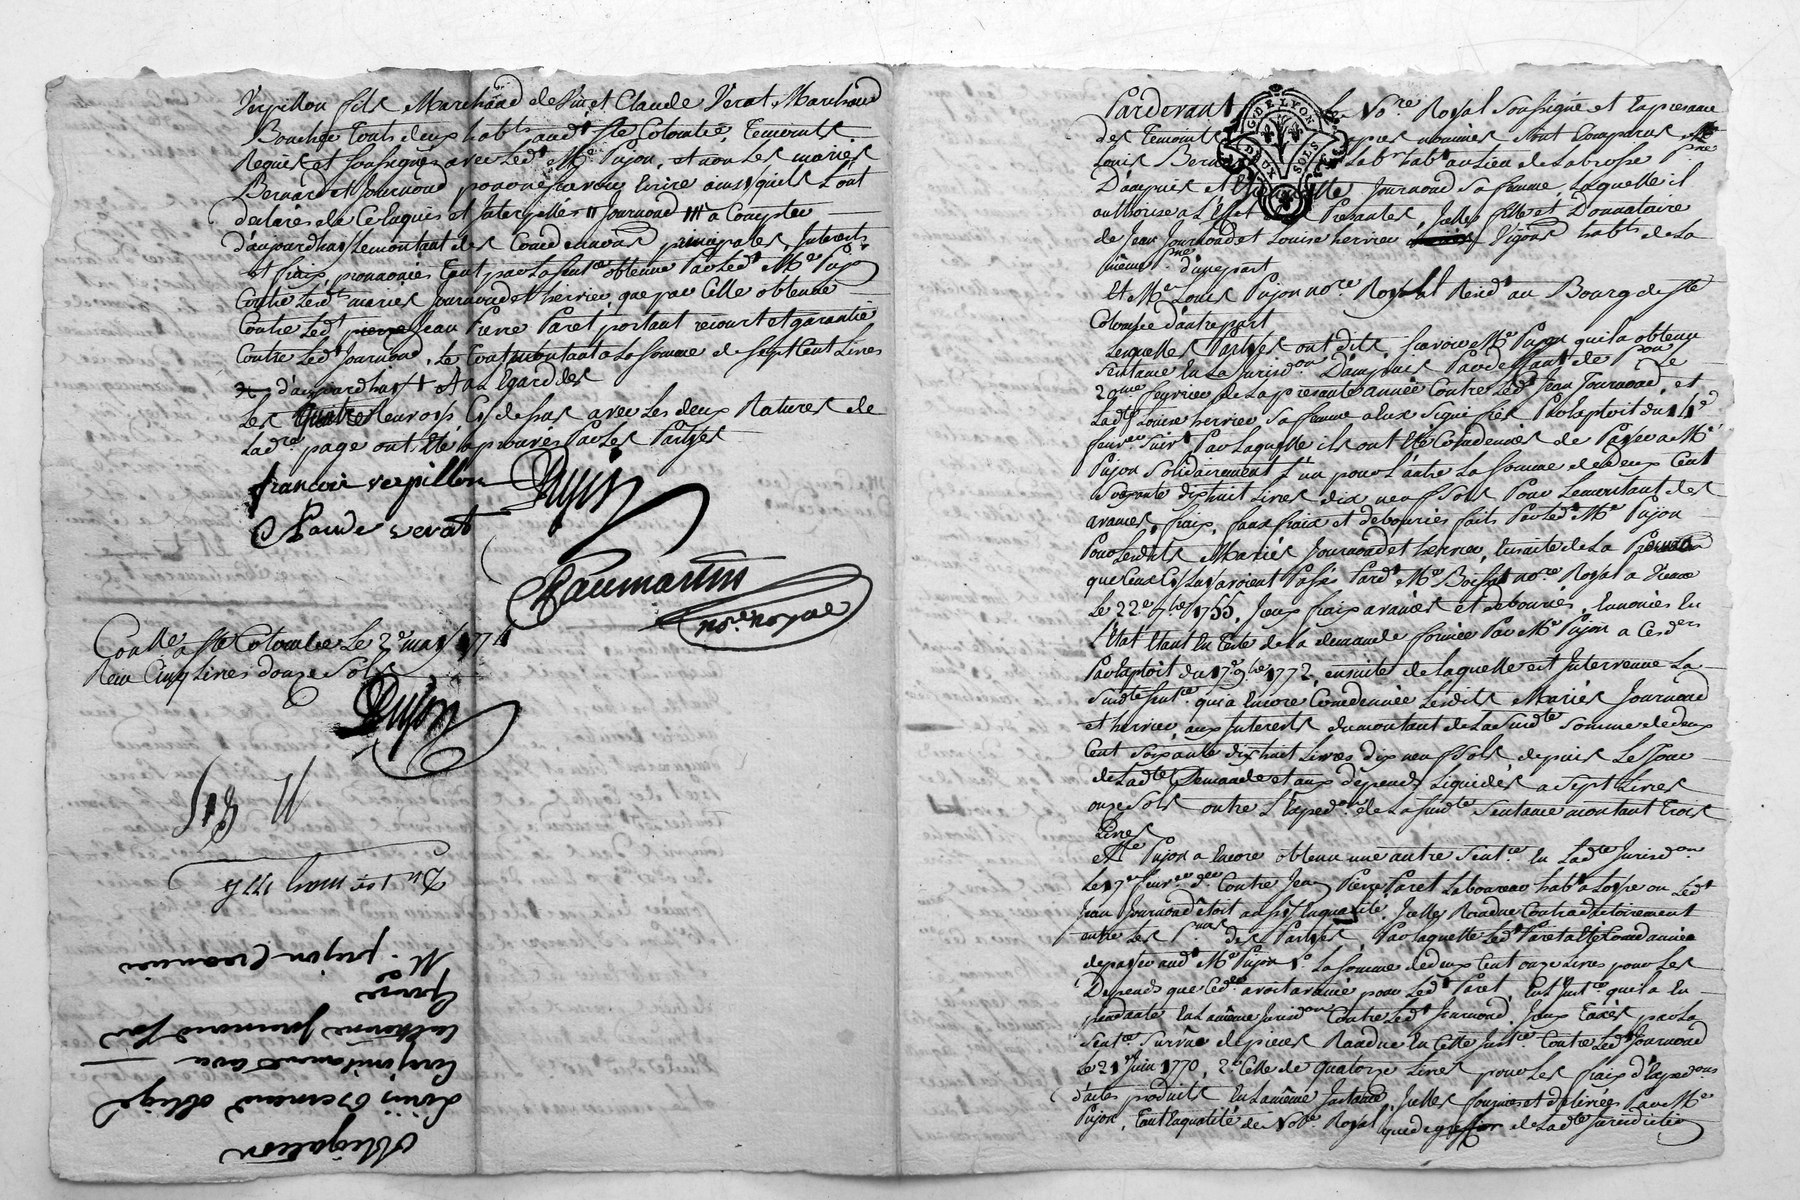 Verpillon fils Marchand de Vin et Claude Verat Marchand
Boucher touts deux habts audt Ste Colombe temoints
Requis et soussignés avec ledt Me Pujon, et non les mariés
Bernard et Journoud pour ne scavoir Ecrire ainsy qu'ils l'ont
declarés de ce Enquis et Interpellés Journoud a Compter
d'aujourdhuy le montant des Condemnaõns principales, Interets
et fraix prononcés tant par la sentce obtenue Par ledt Me Pujon
Contre lesdts mariés Journoud et herrieu, que par Celle obtenue
Contre ledt Jean Pierre Paret portant recourt et garantie
Contre ledt Journoud, le tout montant a la somme de sept Cent Livres
d'aujourdhuy + A L'Egard des
Les quatre renvois Cy dessus avec les deux Ratures de
Ladre page ont été aprouvés Par les Parties
francois verpillon Pujon
Claude verat
Baumartin
nore royal
Conlle a Ste Colombe le 2e may 1774
Reçu Cinq Livres douze Sols
Pujon
Du 1er may 1774
Me pujon Creancier
Louis Bernard obligé
Conjointement avec
Catherine Journoud sa
femme
Obligation
G. DE LYON
DEUX SOLS
Pardevant le Nore Royal soussigné et En presence
des temoints apres nommés sont Comparus
Louis Bernard Labr habt au lieu de Labrosse Psse
D'ampuis et Journoud sa femme, laquelle il
authorise a L'Effet Presentes, Icelle fille et Donnataire
de Jean Journoud et Louise herrieu Vigons habts de la
même Psse d'une part
Et Me Louis Pujon nore Royal Residt au Bourg de Ste
Colombe d'autre part
Lesquelles Parties ont dit, scavoir Me Pujon qu'il a obtenu
sentance En la Jurisdon D'ampuis Par deffaut de
20me fevrier de la presente année Contre ledt Jean Journoud, et
Ladte Louise herrieu sa femme a Eux signifiée Par Exploit du 14e
suivt Par laquelle ils ont été Condemnés de Payer a Me
Pujon Solidairement l'un pour l'autre la somme de deux Cent
Soixante dixhuit Livres dix neuf sols Pour le montant des
avances, fraix, faux fraix et debourcés faits Par ledt Me Pujon
Pour lesdits Mariés Journoud et herrieu, Ensuite de la
que Ceux Cy luy avoient Passés Pardt Me Boissat nore Royal a Vienne
le 22e 7bre 1755, Iceux fraix avances et debourcés, Enoncés En
l'état étant En tete de la demande formée Par Me Pujon a Cesdrs
Par Exploit du 17e 9bre 1772, ensuite de laquelle est Intervenue la
susdte sentce qui a Encore Condemnée lesdits Mariés Journoud
et herrieu aux Interets du montant de la susdte somme de deux
Cent soixante dixhuit Livres dix neuf sols, depuis le Jour
de Ladte Demande et aux depends Liquidés a sept Livres
onze sols outre L'Expedon de la susdte sentance montant trois
Livres
Me Pujon a Encore obtenu une autre sentce En Ladte Jurisdon
le 17e Contre Jean Pierre Paret Laboureur habt a Loire ou ledt
Jean Journoud étoit aussy En qualité, Icelle Rendue Contradictoirement
entre les Parties, Par laquelle ledt Paret a été Condamné
de payer audt Me Pujon 1o la somme de deux Cent onze Livres pour les
Depends que Cedr avoit avancé pour ledt Paret En l'Instce qu'il a Eu
pendante En la même Jurisdon Contre ledt Journoud, Iceux taxés par la
sentce survenue de pieces Rendue En Cette Instce Contre ledt Journoud
le 21e Juin 1770, 2o Celle de quatorze Livres pour les fraix d'Expedons
d'actes produits En la même Instance, Icelles fournies et delivrées Par Me
Pujon, tant En qualité de Nore Royal que de greffier de Ladte Jurisdiction